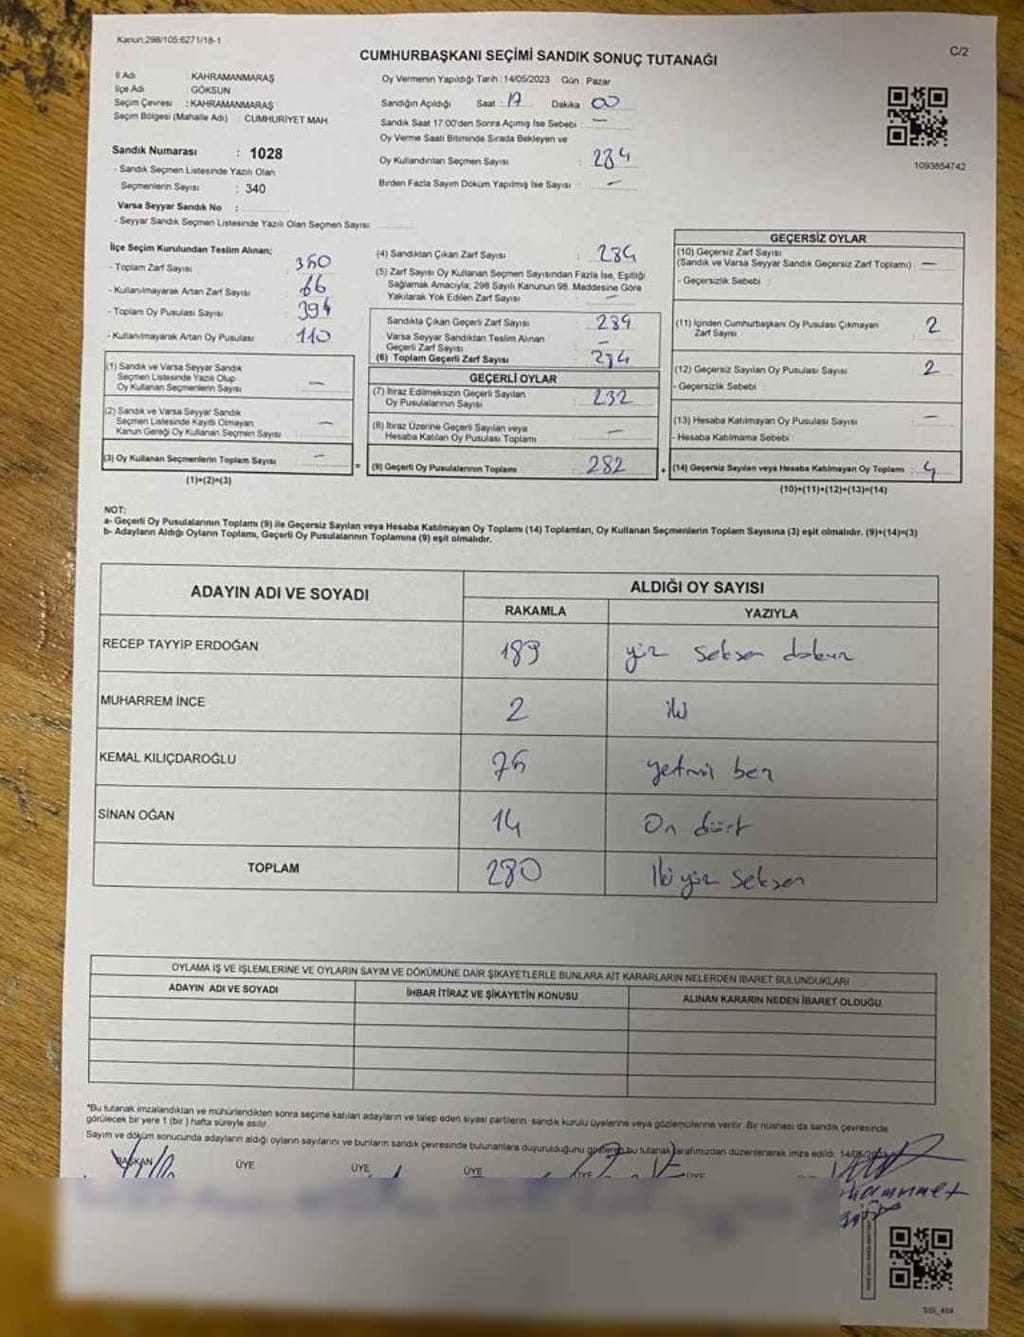 Kanun:298/105;6271/18-1
C/2
CUMHURBAŞKANI SEÇİMİ SANDIK SONUÇ TUTANAĞI
İl Adı : KAHRAMANMARAŞ
İlçe Adı : GÖKSUN
Seçim Çevresi : KAHRAMANMARAŞ
Seçim Bölgesi (Mahalle Adı) : CUMHURİYET MAH.
Sandık Numarası : 1028
- Sandık Seçmen Listesinde Yazılı Olan
Seçmenlerin Sayısı : 340
Varsa Seyyar Sandık No :
- Seyyar Sandık Seçmen Listesinde Yazılı Olan Seçmen Sayısı:
Oy Vermenin Yapıldığı Tarih : 14/05/2023 Gün : Pazar
Sandığın Açıldığı Saat : 17 Dakika : 00
Sandık Saat 17:00'den Sonra Açılmış İse Sebebi : —
Oy Verme Saati Bitiminde Sırada Bekleyen ve
Oy Kullandırılan Seçmen Sayısı : 284
Birden Fazla Sayım Döküm Yapılmış İse Sayısı : —
1093854742
İlçe Seçim Kurulundan Teslim Alınan;
- Toplam Zarf Sayısı : 350
- Kullanılmayarak Artan Zarf Sayısı : 66
- Toplam Oy Pusulası Sayısı : 394
- Kullanılmayarak Artan Oy Pusulası : 110
(1) Sandık ve Varsa Seyyar Sandık
Seçmen Listesinde Yazılı Olup
Oy Kullanan Seçmenlerin Sayısı : —
(2) Sandık ve Varsa Seyyar Sandık
Seçmen Listesinde Kayıtlı Olmayan
Kanun Gereği Oy Kullanan Seçmen Sayısı : —
(3) Oy Kullanan Seçmenlerin Toplam Sayısı : —
(1)+(2)=(3)
(4) Sandıktan Çıkan Zarf Sayısı : 284
(5) Zarf Sayısı Oy Kullanan Seçmen Sayısından Fazla İse, Eşitliği
Sağlamak Amacıyla; 298 Sayılı Kanunun 98. Maddesine Göre
Yakılarak Yok Edilen Zarf Sayısı : —
Sandıkta Çıkan Geçerli Zarf Sayısı : 284
Varsa Seyyar Sandıktan Teslim Alınan
Geçerli Zarf Sayısı : —
(6) Toplam Geçerli Zarf Sayısı : 284
GEÇERLİ OYLAR
(7) İtiraz Edilmeksizin Geçerli Sayılan
Oy Pusulalarının Sayısı : 282
(8) İtiraz Üzerine Geçerli Sayılan veya
Hesaba Katılan Oy Pusulası Toplamı : —
= (9) Geçerli Oy Pusulalarının Toplamı : 282
GEÇERSİZ OYLAR
(10) Geçersiz Zarf Sayısı
(Sandık ve Varsa Seyyar Sandık Geçersiz Zarf Toplamı) : —
- Geçersizlik Sebebi :
(11) İçinden Cumhurbaşkanı Oy Pusulası Çıkmayan
Zarf Sayısı : 2
(12) Geçersiz Sayılan Oy Pusulası Sayısı : 2
- Geçersizlik Sebebi :
(13) Hesaba Katılmayan Oy Pusulası Sayısı : —
- Hesaba Katılmama Sebebi :
+ (14) Geçersiz Sayılan veya Hesaba Katılmayan Oy Toplamı : 4
(10)+(11)+(12)+(13)=(14)
NOT:
a- Geçerli Oy Pusulalarının Toplamı (9) ile Geçersiz Sayılan veya Hesaba Katılmayan Oy Toplamı (14) Toplamları, Oy Kullanan Seçmenlerin Toplam Sayısına (3) eşit olmalıdır. (9)+(14)=(3)
b- Adayların Aldığı Oyların Toplamı, Geçerli Oy Pusulalarının Toplamına (9) eşit olmalıdır.
ADAYIN ADI VE SOYADI
ALDIĞI OY SAYISI
RAKAMLA YAZIYLA
RECEP TAYYİP ERDOĞAN 189 yüz seksen dokuz
MUHARREM İNCE 2 iki
KEMAL KILIÇDAROĞLU 75 yetmiş beş
SİNAN OĞAN 14 On dört
TOPLAM 280 İki yüz seksen
OYLAMA İŞ VE İŞLEMLERİNE VE OYLARIN SAYIM VE DÖKÜMÜNE DAİR ŞİKAYETLERLE BUNLARA AİT KARARLARIN NELERDEN İBARET BULUNDUKLARI
ADAYIN ADI VE SOYADI İHBAR İTİRAZ VE ŞİKAYETİN KONUSU ALINAN KARARIN NEDEN İBARET OLDUĞU
*Bu tutanak imzalandıktan ve mühürlendikten sonra seçime katılan adayların ve talep eden siyasi partilerin sandık kurulu üyelerine veya gözlemcilerine verilir. Bir nüshası da sandık çevresinde
görülecek bir yere 1 (bir) hafta süreyle asılır.
Sayım ve döküm sonucunda adayların aldığı oyların sayılarını ve bunların sandık çevresinde bulunanlara duyurulduğunu gösteren bu tutanak tarafımızdan düzenlenerek imza edildi. 14/05/2023
BAŞKAN ÜYE ÜYE ÜYE ÜYE ÜYE
Muhammet